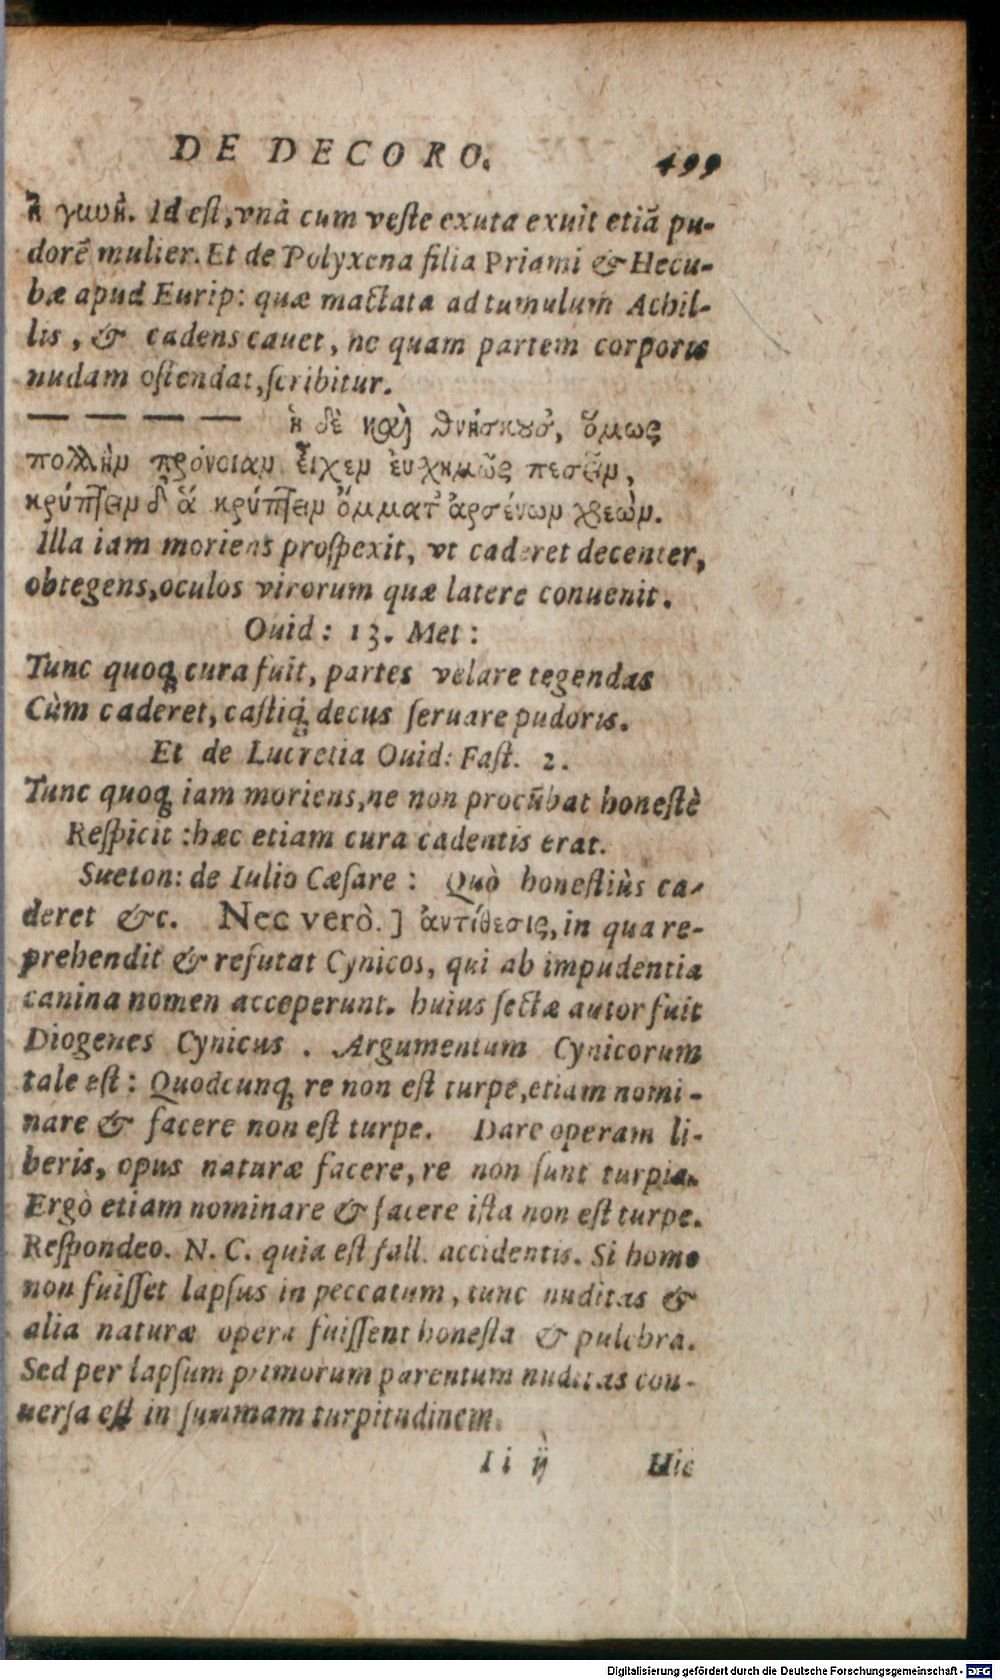 DE DECORO. 499
ἡ γυνή. Id est, vnà cum veste exuta exuit etiã pu-
dorẽ mulier. Et de Polyxena filia Priami & Hecu-
bæ apud Eurip: quæ mactata ad tumulum Achil-
lis, & cadens cauet, ne quam partem corporis
nudam ostendat, scribitur.
— — — — ἡ δὲ καὶ θνήσκουσ', ὅμως
πολλὴν πρόνοιαν εἶχεν ἐυχημῶς πεσεῖν,
κρύπτειν δ' ἃ κρύπτειν ὄμματ' ἀρσένων χρεών.
Illa iam moriens prospexit, vt caderet decenter,
obtegens, oculos virorum quæ latere conuenit.
Ouid: 13. Met:
Tunc quoq; cura fuit, partes velare tegendas
Cùm caderet, castiq; decus seruare pudoris.
Et de Lucretia Ouid: Fast. 2.
Tunc quoq; iam moriens, ne non procũbat honestè
Respicit: hæc etiam cura cadentis erat.
Sueton: de Iulio Cæsare: Quò honestiùs ca-
deret &c. Nec verò.] ἀντίθεσις, in qua re-
prehendit & refutat Cynicos, qui ab impudentia
canina nomen acceperunt. huius sectæ autor fuit
Diogenes Cynicus. Argumentum Cynicorum
tale est: Quodcunq; re non est turpe, etiam nomi-
nare & facere non est turpe. Dare operam li-
beris, opus naturæ facere, re non sunt turpia.
Ergò etiam nominare & facere ista non est turpe.
Respondeo. N. C. quia est fall. accidentis. Si homo
non fuisset lapsus in peccatum, tunc nuditas &
alia naturæ opera fuissent honesta & pulchra.
Sed per lapsum primorum parentum nuditas con-
uersa est in summam turpitudinem.
Ii ij Hic
Digitalisierung gefördert durch die Deutsche Forschungsgemeinschaft - DFG